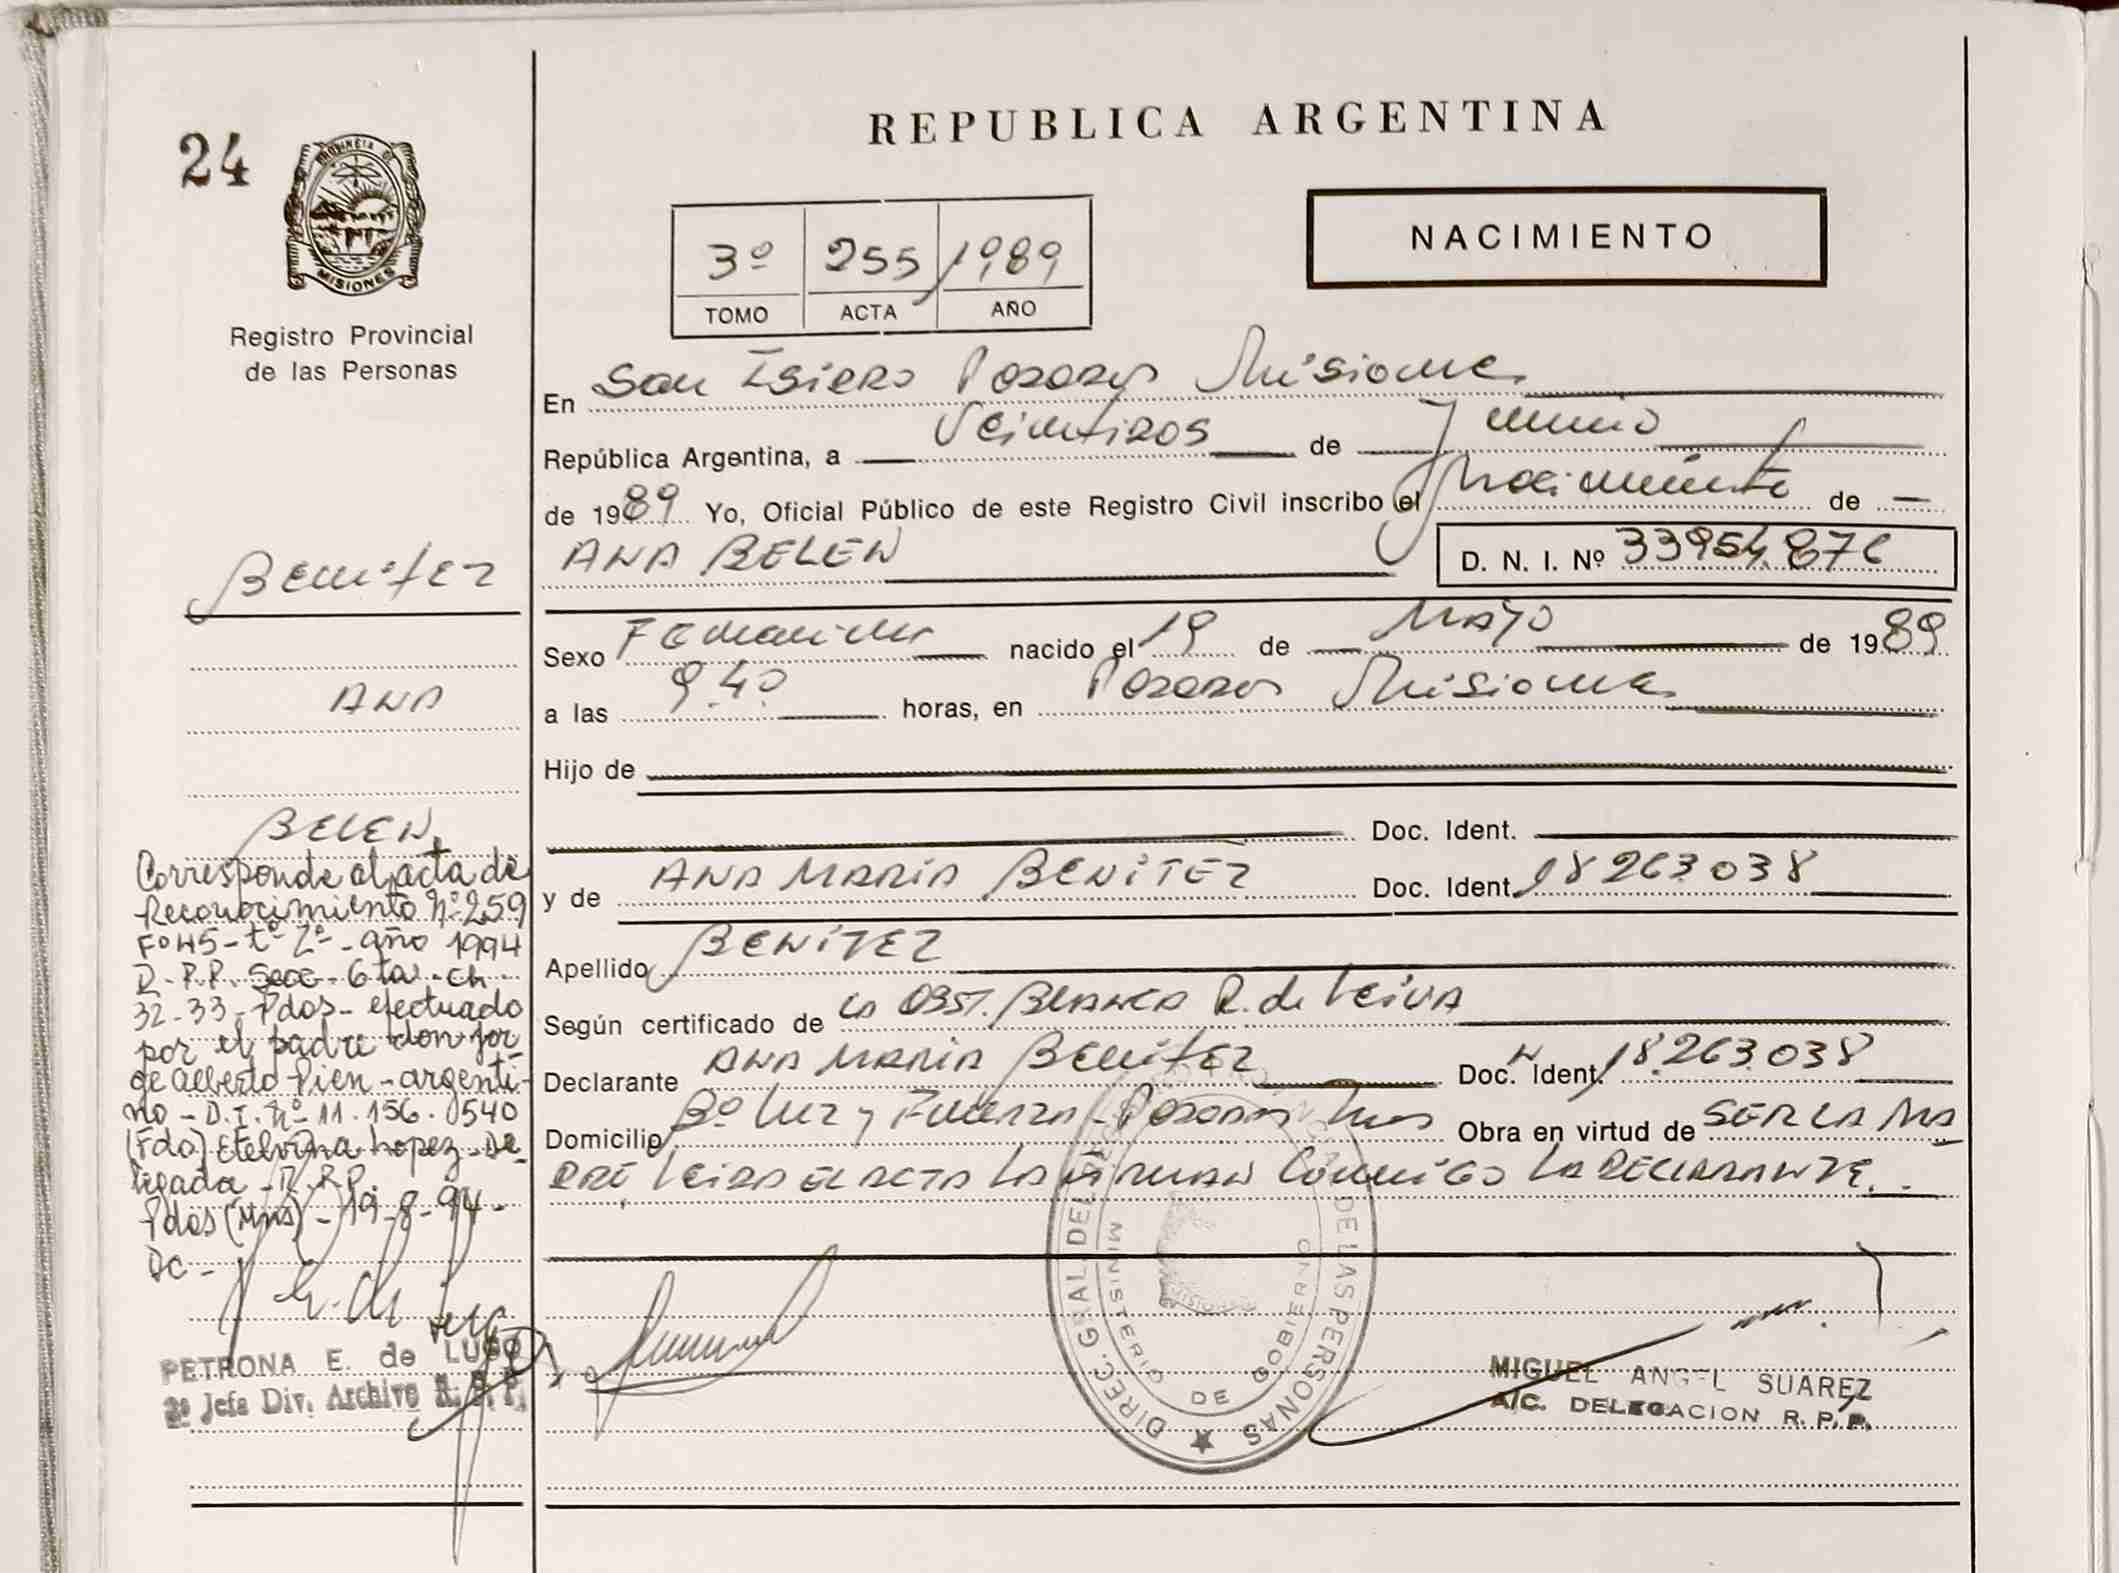 REPUBLICA ARGENTINA
24
PROVINCIA DE
MISIONES
Registro Provincial
de las Personas
3º 255 1989
TOMO ACTA AÑO
NACIMIENTO
En San Isidro Posadas Misiones
República Argentina, a Veintidos de Junio
de 1989 Yo, Oficial Público de este Registro Civil inscribo el Nacimiento de
ANA BELEN D. N. I. Nº 33954.876
Sexo Femenino nacido el 19 de MAYO de 1989
a las 9.40 horas, en Posadas Misiones
Hijo de
Doc. Ident.
y de ANA MARIA BENITEZ Doc. Ident. 18263038
Apellido BENITEZ
Según certificado de la OBST. BLANCA R. de Leiva
Declarante ANA MARIA Benitez Doc. Ident. 18.263.038
Domicilio Bº Luz y Fuerza - Posadas Mnes Obra en virtud de SER LA MA
DRE, Leida EL ACTA LA FIRMAN Conmigo LA DECLARANTE.
Benitez
ANA
BELEN
Corresponde al acta de
Reconocimiento Nº 259
Fº 45 - tº 2º - año 1994
R.P.P. Secc - 6ta - ch
32-33 - Pdas - efectuado
por el padre don Jor-
ge Alberto Pien - argenti-
no - D.I. Nº 11.156.540
(Fdo) Etelvina Lopez - De
legada - R.P.P.
Pdas (Mns) - 19-8-94 -
DC -
PETRONA E. de LUGO
2º Jefa Div. Archivo R. P. P.
DIREC. GRAL DEL DE LAS PERSONAS
MINISTERIO DE GOBIERNO
MIGUEL ANGEL SUAREZ
A/C. DELEGACION R. P. P.